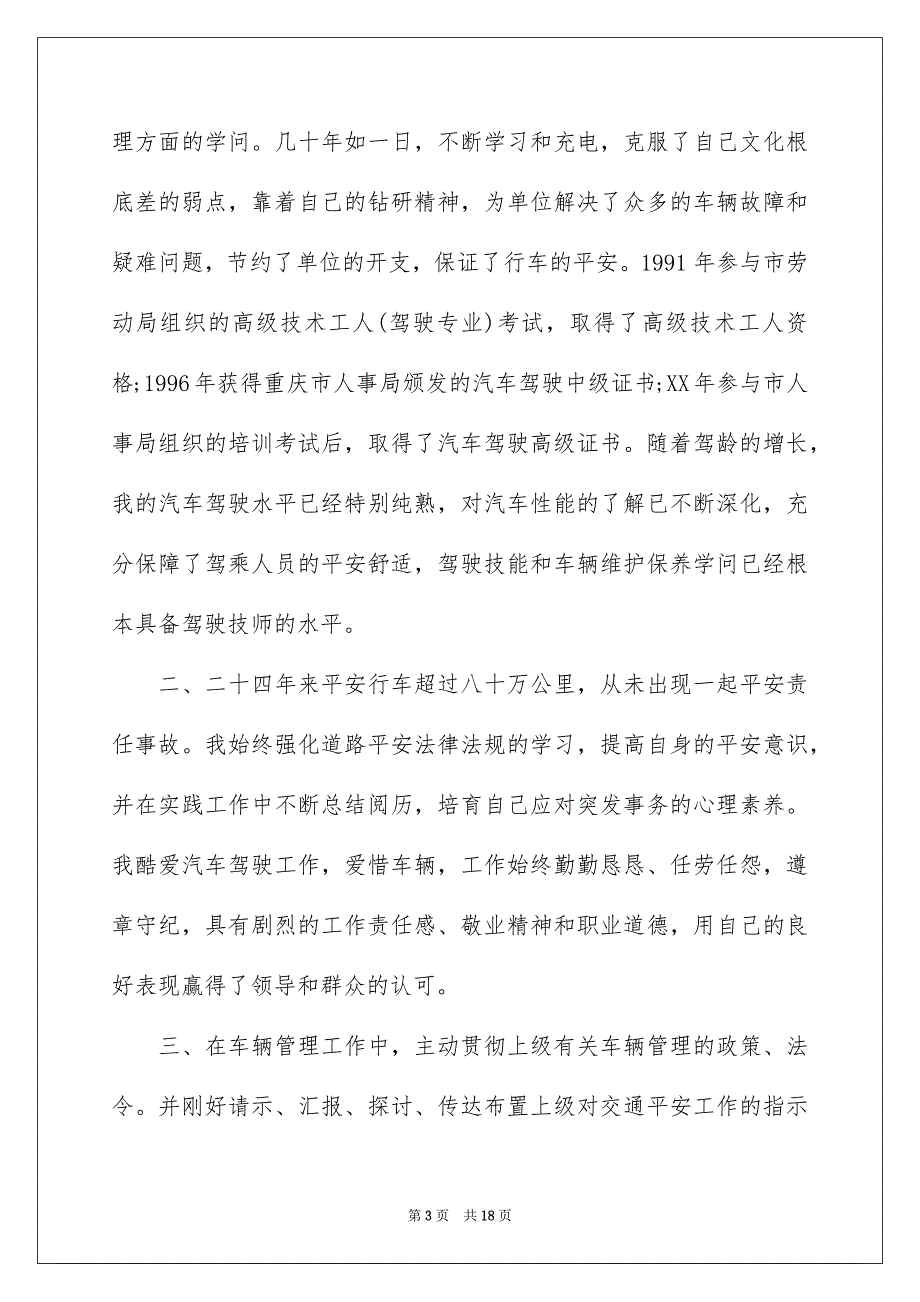 理方面的学问。几十年如一日，不断学习和充电，克服了自己文化根
底差的弱点，靠着自己的钻研精神，为单位解决了众多的车辆故障和
疑难问题，节约了单位的开支，保证了行车的平安。1991 年参与市劳
动局组织的高级技术工人(驾驶专业)考试，取得了高级技术工人资
格;1996 年获得重庆市人事局颁发的汽车驾驶中级证书;XX 年参与市人
事局组织的培训考试后，取得了汽车驾驶高级证书。随着驾龄的增长，
我的汽车驾驶水平已经特别纯熟，对汽车性能的了解已不断深化，充
分保障了驾乘人员的平安舒适，驾驶技能和车辆维护保养学问已经根
本具备驾驶技师的水平。
二、二十四年来平安行车超过八十万公里，从未出现一起平安责
任事故。我始终强化道路平安法律法规的学习，提高自身的平安意识，
并在实践工作中不断总结阅历，培育自己应对突发事务的心理素养。
我酷爱汽车驾驶工作，爱惜车辆，工作始终勤勤恳恳、任劳任怨，遵
章守纪，具有剧烈的工作责任感、敬业精神和职业道德，用自己的良
好表现赢得了领导和群众的认可。
三、在车辆管理工作中，主动贯彻上级有关车辆管理的政策、法
令。并刚好请示、汇报、探讨、传达布置上级对交通平安工作的指示
第 3 页 共 18 页